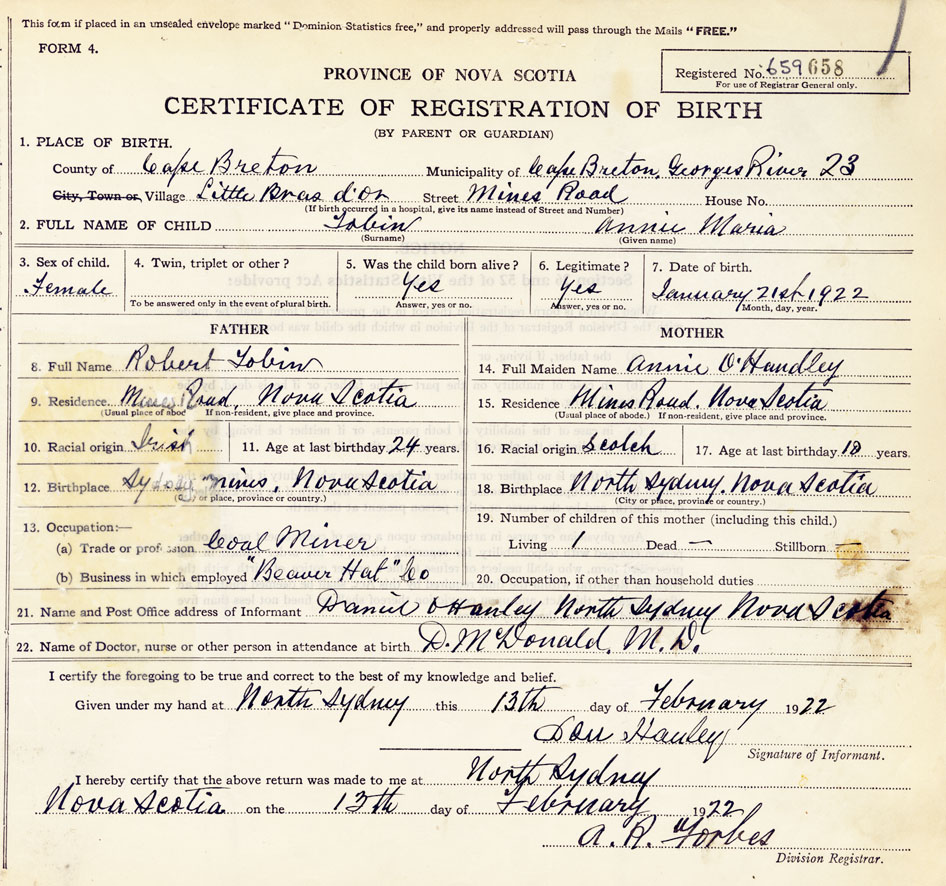 This form if placed in an unsealed envelope marked "Dominion Statistics free," and properly addressed will pass through the Mails "FREE."
FORM 4.
PROVINCE OF NOVA SCOTIA
Registered No. 659658
For use of Registrar General only.
CERTIFICATE OF REGISTRATION OF BIRTH
(BY PARENT OR GUARDIAN)
1. PLACE OF BIRTH.
County of Cape Breton Municipality of Cape Breton, Georges River 23
City, Town or Village Little Bras d'or Street Mines Road House No.
(If birth occurred in a hospital, give its name instead of Street and Number)
2. FULL NAME OF CHILD Tobin Annie Maria
(Surname) (Given name)
3. Sex of child. 4. Twin, triplet or other? 5. Was the child born alive? 6. Legitimate? 7. Date of birth.
Female Yes Yes January 21st 1922
To be answered only in the event of plural birth. Answer, yes or no. Answer, yes or no. Month, day, year.
FATHER
8. Full Name Robert Tobin
9. Residence Mines Road, Nova Scotia
(Usual place of aboc If non-resident, give place and province.
10. Racial origin Irish 11. Age at last birthday 24 years.
12. Birthplace Sydney mines, Nova Scotia
(City or place, province or country.)
13. Occupation:—
(a) Trade or profession Coal Miner
(b) Business in which employed "Beaver Hat" Co
MOTHER
14. Full Maiden Name Annie O'Handley
15. Residence Mines Road, Nova Scotia
(Usual place of abode.) If non-resident, give place and province.
16. Racial origin Scotch 17. Age at last birthday 18 years.
18. Birthplace North Sydney, Nova Scotia
(City or place, province or country.)
19. Number of children of this mother (including this child.)
Living 1 Dead — Stillborn —
20. Occupation, if other than household duties
21. Name and Post Office address of Informant Daniel O'Hanley North Sydney Nova Scotia
22. Name of Doctor, nurse or other person in attendance at birth D. McDonald, M.D.
I certify the foregoing to be true and correct to the best of my knowledge and belief.
Given under my hand at North Sydney this 13th day of February 1922
Dan Hanley
Signature of Informant.
I hereby certify that the above return was made to me at North Sydney
Nova Scotia on the 13th day of February 1922
A. R. Forbes
Division Registrar.